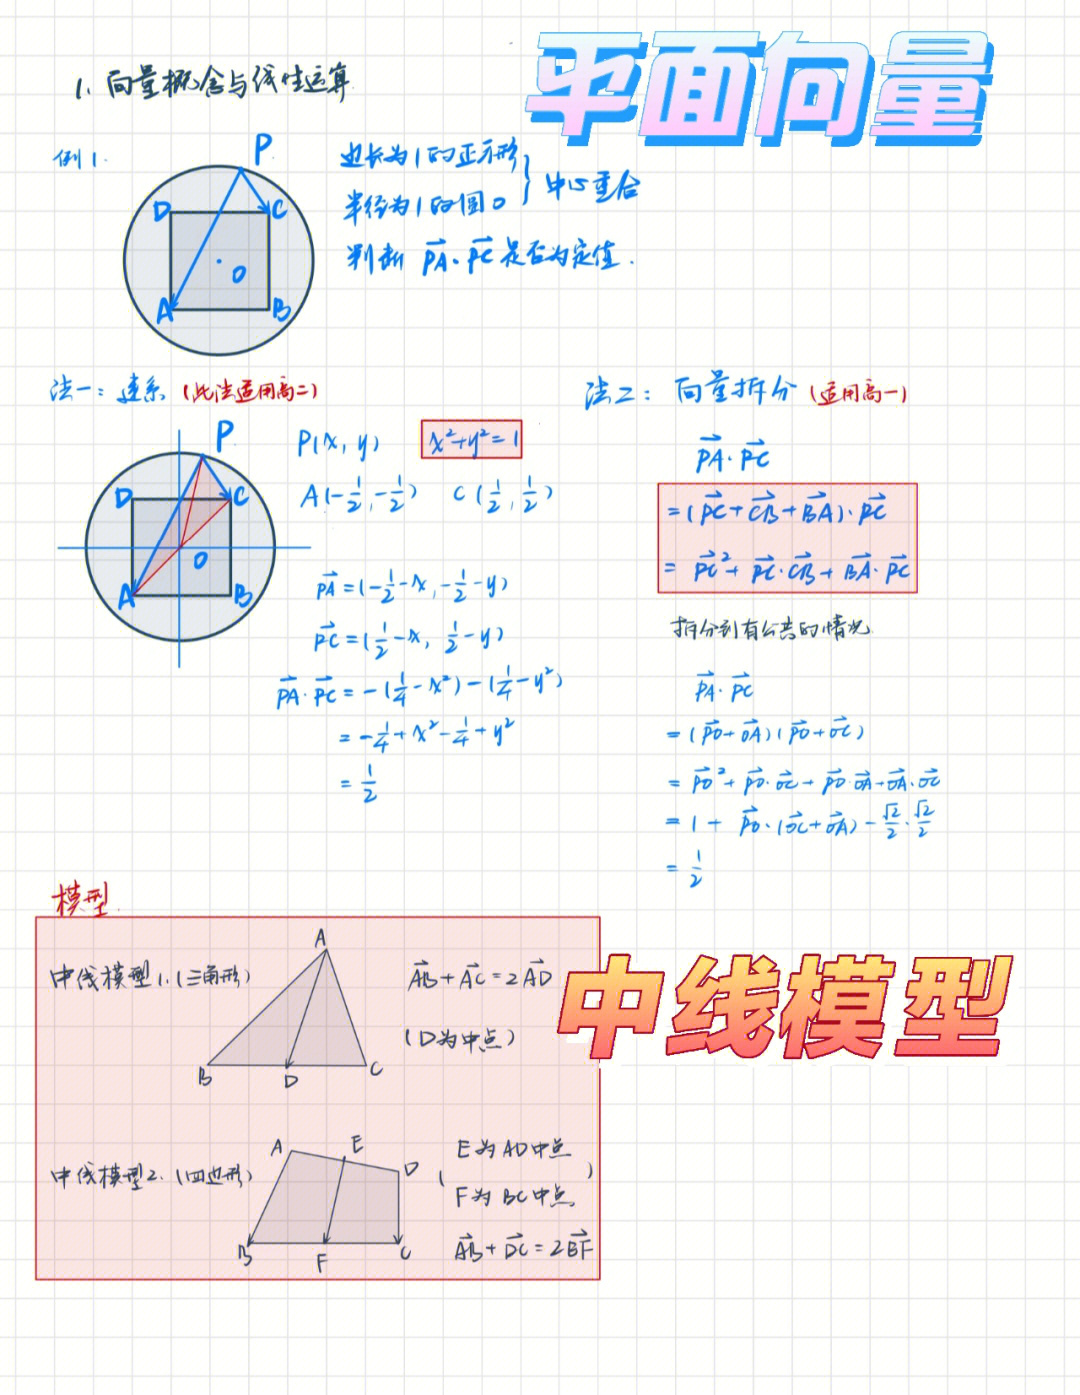 平面向量
1. 向量概念与线性运算
例1.
P
D
C
O
A
B
边长为1的正方形
半径为1的圆O
中心重合
判断 $\overrightarrow{PA}\cdot\overrightarrow{PC}$ 是否为定值.
法一: 建系 (此法适用高二)
P
D
C
O
A
B
P(x, y)
x²+y²=1
A(-1/2, -1/2) C(1/2, 1/2)
$\overrightarrow{PA}$=(-1/2-x, -1/2-y)
$\overrightarrow{PC}$=(1/2-x, 1/2-y)
$\overrightarrow{PA}\cdot\overrightarrow{PC}$=-(1/4-x²)-(1/4-y²)
=-1/4+x²-1/4+y²
=1/2
法二: 向量拆分 (适用高一)
$\overrightarrow{PA}\cdot\overrightarrow{PC}$
=($\overrightarrow{PC}+\overrightarrow{CB}+\overrightarrow{BA}$)·$\overrightarrow{PC}$
=$\overrightarrow{PC}^2+\overrightarrow{PC}\cdot\overrightarrow{CB}+\overrightarrow{BA}\cdot\overrightarrow{PC}$
拆分到有公共的情况
$\overrightarrow{PA}\cdot\overrightarrow{PC}$
=($\overrightarrow{PO}+\overrightarrow{OA}$)($\overrightarrow{PO}+\overrightarrow{OC}$)
=$\overrightarrow{PO}^2+\overrightarrow{PO}\cdot\overrightarrow{OC}+\overrightarrow{PO}\cdot\overrightarrow{OA}+\overrightarrow{OA}\cdot\overrightarrow{OC}$
=1+$\overrightarrow{PO}\cdot(\overrightarrow{OC}+\overrightarrow{OA})$-√2/2·√2/2
=1/2
模型.
中线模型
中线模型1. (三角形)
A
B
D
C
$\overrightarrow{AB}+\overrightarrow{AC}=2\overrightarrow{AD}$
(D为中点)
中线模型2. (四边形)
A
E
D
B
F
C
(E为AD中点
F为BC中点)
$\overrightarrow{AB}+\overrightarrow{DC}=2\overrightarrow{EF}$